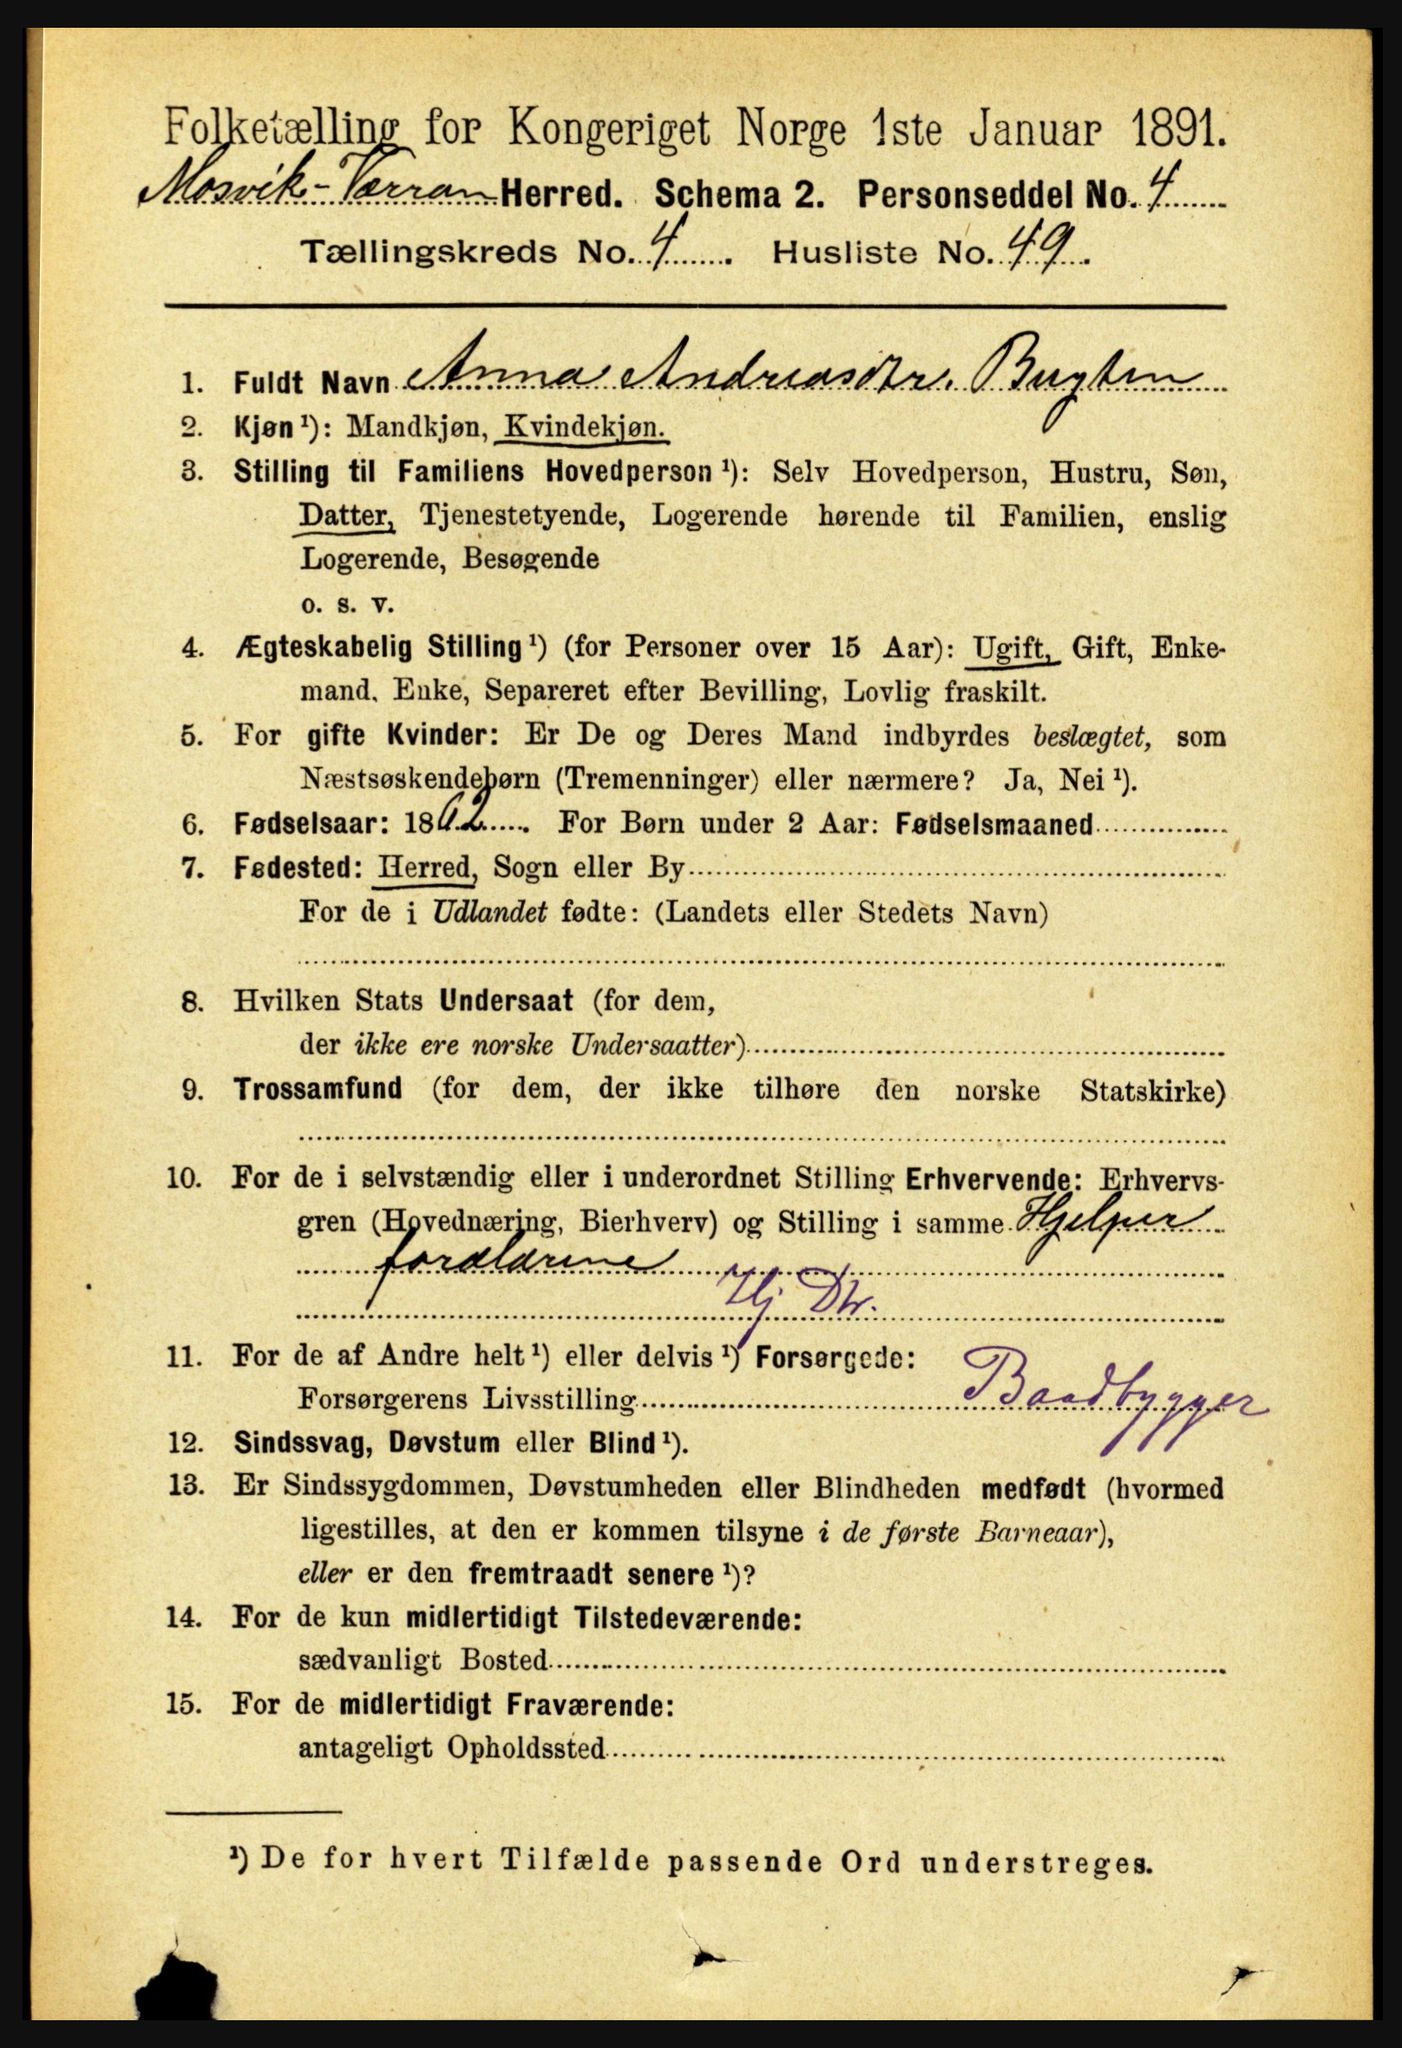 Folketælling for Kongeriget Norge 1ste Januar 1891.
Mosvik-Værran Herred. Schema 2. Personseddel No. 4
Tællingskreds No. 4. Husliste No. 49.
1. Fuldt Navn Anna Andreasdtr. Bugten
2. Kjøn ¹): Mandkjøn, Kvindekjøn.
3. Stilling til Familiens Hovedperson ¹): Selv Hovedperson, Hustru, Søn,
Datter, Tjenestetyende, Logerende hørende til Familien, enslig
Logerende, Besøgende
o. s. v.
4. Ægteskabelig Stilling ¹) (for Personer over 15 Aar): Ugift, Gift, Enke-
mand, Enke, Separeret efter Bevilling, Lovlig fraskilt.
5. For gifte Kvinder: Er De og Deres Mand indbyrdes beslægtet, som
Næstsøskendebørn (Tremenninger) eller nærmere? Ja, Nei ¹).
6. Fødselsaar: 1862. For Børn under 2 Aar: Fødselsmaaned
7. Fødested: Herred, Sogn eller By
For de i Udlandet fødte: (Landets eller Stedets Navn)
8. Hvilken Stats Undersaat (for dem,
der ikke ere norske Undersaatter)
9. Trossamfund (for dem, der ikke tilhøre den norske Statskirke)
10. For de i selvstændig eller i underordnet Stilling Erhvervende: Erhvervs-
gren (Hovednæring, Bierhverv) og Stilling i samme Hjelper
forældrene
Hj Dtr.
11. For de af Andre helt ¹) eller delvis ¹) Forsørgede:
Forsørgerens Livsstilling Baadbygger
12. Sindssvag, Døvstum eller Blind ¹).
13. Er Sindssygdommen, Døvstumheden eller Blindheden medfødt (hvormed
ligestilles, at den er kommen tilsyne i de første Barneaar),
eller er den fremtraadt senere ¹)?
14. For de kun midlertidigt Tilstedeværende:
sædvanligt Bosted
15. For de midlertidigt Fraværende:
antageligt Opholdssted
¹) De for hvert Tilfælde passende Ord understreges.